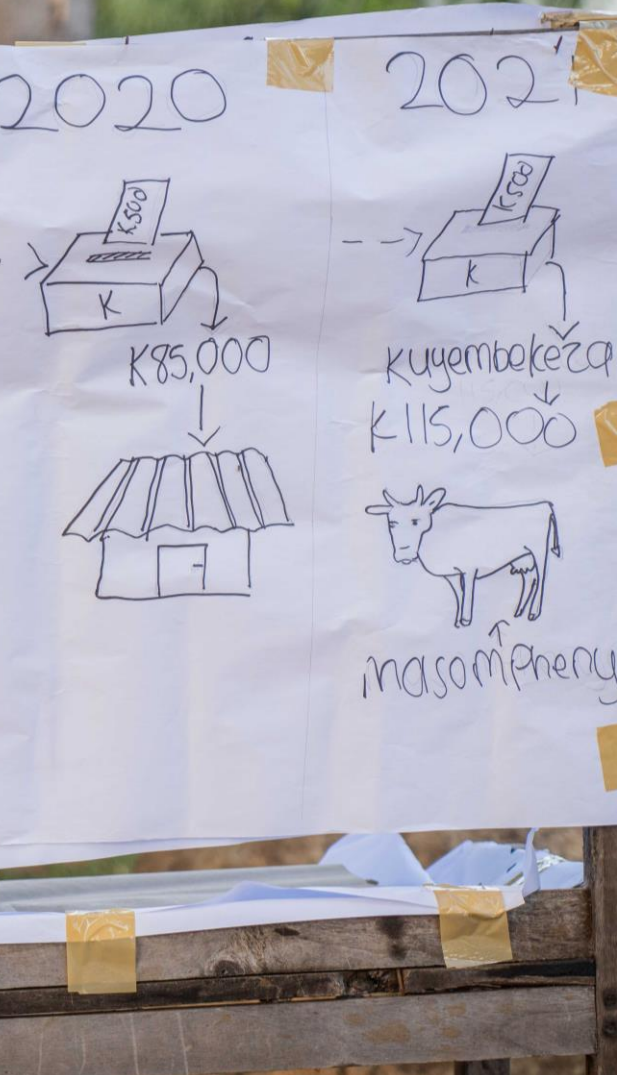 2020
K500
K
K85,000
2021
K500
K
kuyembekeza
K115,000
masompheny